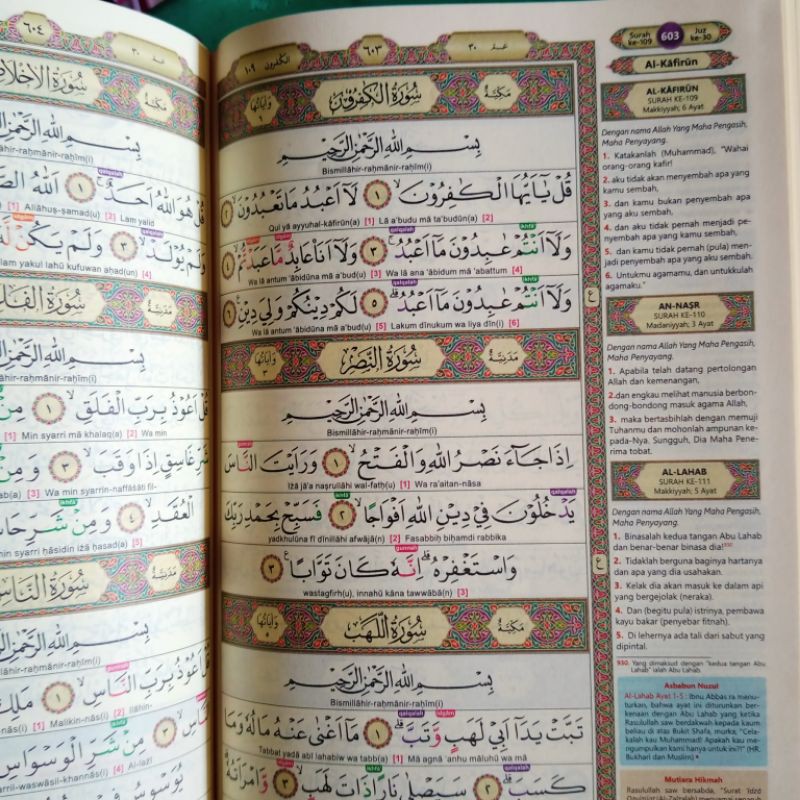 عم ٣٠
٦٠٣
الكفرون ١٠٩
مكية
سورة الكفرون
وآياتها ٦
بِسْمِ اللهِ الرَّحْمٰنِ الرَّحِيْمِ
Bismillāhir-raḥmānir-raḥīm(i)
قُلْ يٰٓاَيُّهَا الْكٰفِرُوْنَۙ ١ لَآ اَعْبُدُ مَا تَعْبُدُوْنَۙ ٢
Qul yā ayyuhal-kāfirūn(a) [1] Lā a'budu mā ta'budūn(a) [2]
وَلَآ اَنْتُمْ عٰبِدُوْنَ مَآ اَعْبُدُۚ ٣ وَلَآ اَنَا۠ عَابِدٌ مَّا عَبَدْتُّمْۙ ٤
Wa lā antum 'ābidūna mā a'bud(u) [3] Wa lā ana 'ābidum mā 'abattum [4]
وَلَآ اَنْتُمْ عٰبِدُوْنَ مَآ اَعْبُدُۗ ٥ لَكُمْ دِيْنُكُمْ وَلِيَ دِيْنِ ٦
Wa lā antum 'ābidūna mā a'bud(u) [5] Lakum dīnukum wa liya dīn(i) [6]
مدنية
سورة النصر
وآياتها ٣
بِسْمِ اللهِ الرَّحْمٰنِ الرَّحِيْمِ
Bismillāhir-raḥmānir-raḥīm(i)
اِذَا جَآءَ نَصْرُ اللهِ وَالْفَتْحُۙ ١ وَرَاَيْتَ النَّاسَ
Iżā jā'a naṣrullāhi wal-fatḥ(u) [1] Wa ra'aitan-nāsa
يَدْخُلُوْنَ فِيْ دِيْنِ اللهِ اَفْوَاجًاۙ ٢ فَسَبِّحْ بِحَمْدِ رَبِّكَ
yadkhulūna fī dīnillāhi afwājā(n) [2] Fasabbiḥ biḥamdi rabbika
وَاسْتَغْفِرْهُۗ اِنَّهٗ كَانَ تَوَّابًا ٣
wastagfirh(u), innahū kāna tawwābā(n) [3]
مكية
سورة اللهب
وآياتها ٥
بِسْمِ اللهِ الرَّحْمٰنِ الرَّحِيْمِ
Bismillāhir-raḥmānir-raḥīm(i)
تَبَّتْ يَدَآ اَبِيْ لَهَبٍ وَّتَبَّۗ ١ مَآ اَغْنٰى عَنْهُ مَالُهٗ وَمَا
Tabbat yadā abī lahabiw wa tabb(a) [1] Mā agnā 'anhu māluhū wa mā
كَسَبَۗ ٢ سَيَصْلٰى نَارًا ذَاتَ لَهَبٍۙ ٣ وَّامْرَاَتُهٗ
Surah ke-109
603
Juz ke-30
Al-Kāfirūn
AL-KĀFIRŪN
SURAH KE-109
Makkiyyah; 6 Ayat
Dengan nama Allah Yang Maha Pengasih,
Maha Penyayang.
1. Katakanlah (Muhammad), "Wahai
orang-orang kafir!
2. aku tidak akan menyembah apa yang
kamu sembah,
3. dan kamu bukan penyembah apa
yang aku sembah,
4. dan aku tidak pernah menjadi pe-
nyembah apa yang kamu sembah,
5. dan kamu tidak pernah (pula) men-
jadi penyembah apa yang aku sembah.
6. Untukmu agamamu, dan untukkulah
agamaku."
AN-NAṢR
SURAH KE-110
Madaniyyah; 3 Ayat
Dengan nama Allah Yang Maha Pengasih,
Maha Penyayang.
1. Apabila telah datang pertolongan
Allah dan kemenangan,
2.dan engkau melihat manusia berbon-
dong-bondong masuk agama Allah,
3. maka bertasbihlah dengan memuji
Tuhanmu dan mohonlah ampunan ke-
pada-Nya. Sungguh, Dia Maha Pene-
rima tobat.
AL-LAHAB
SURAH KE-111
Makkiyyah; 5 Ayat
Dengan nama Allah Yang Maha Pengasih,
Maha Penyayang.
1. Binasalah kedua tangan Abu Lahab
dan benar-benar binasa dia!930
2. Tidaklah berguna baginya hartanya
dan apa yang dia usahakan.
3. Kelak dia akan masuk ke dalam api
yang bergejolak (neraka).
4. Dan (begitu pula) istrinya, pembawa
kayu bakar (penyebar fitnah).
5. Di lehernya ada tali dari sabut yang
dipintal.
930. Yang dimaksud dengan "kedua tangan Abu
Lahab" ialah Abu Lahab.
Asbabun Nuzul
Al-Lahab Ayat 1-5 : Ibnu Abbas ra menu-
turkan, bahwa ayat ini diturunkan ber-
kenaan dengan Abu Lahab yang ketika
Rasulullah saw berdakwah kepada kaum
beliau di atas Bukit Shafa, murka; "Cela-
kalah kau Muhammad! Apakah kau me-
ngumpulkan kami hanya untuk ini?!" (HR.
Bukhari dan Muslim)
Mutiara Hikmah
Rasulullah saw bersabda, "Surat 'Idzā
عم ٣٠
٦٠٤
سورة الاخلاص
مكية
بِسْمِ اللهِ الرَّحْمٰنِ الرَّحِيْمِ
lāhir-raḥmānir-raḥīm(i)
قُلْ هُوَ اللهُ اَحَدٌۚ ١ اَللهُ
[1] Allāhuṣ-ṣamad(u) [2] Lam yalid
وَلَمْ يُوْلَدْۙ ٣ وَلَمْ يَكُنْ
lam yakul lahū kufuwan aḥad(un) [4]
مدنية
بِسْمِ اللهِ الرَّحْمٰنِ الرَّحِيْمِ
lāhir-raḥmānir-raḥīm(i)
قُلْ اَعُوْذُ بِرَبِّ الْفَلَقِۙ ١ مِنْ
[1] Min syarri mā khalaq(a) [2] Wa min
غَاسِقٍ اِذَا وَقَبَۙ ٣ وَمِنْ
[3] Wa min syarrin-naffāṡāti fil-
الْعُقَدِۙ ٤ وَمِنْ شَرِّ
syarri ḥāsidin iżā ḥasad(a) [5]
مدنية
سورة الناس
بِسْمِ اللهِ الرَّحْمٰنِ الرَّحِيْمِ
lāhir-raḥmānir-raḥīm(i)
اَعُوْذُ بِرَبِّ النَّاسِۙ ١ مَلِكِ
[1] Malikin-nās(i) [2] Ilāhin-
٣ مِنْ شَرِّ الْوَسْوَاسِ
[4] Al-lażī